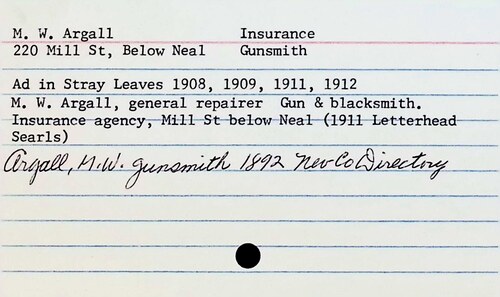 M. W. Argall Insurance
220 Mill St, Below Neal Gunsmith
Ad in Stray Leaves 1908, 1909, 1911, 1912
M. W. Argall, general repairer Gun & blacksmith.
Insurance agency, Mill St below Neal (1911 Letterhead
Searls)
Argall, M.W. gunsmith 1892 Nev Co Directory